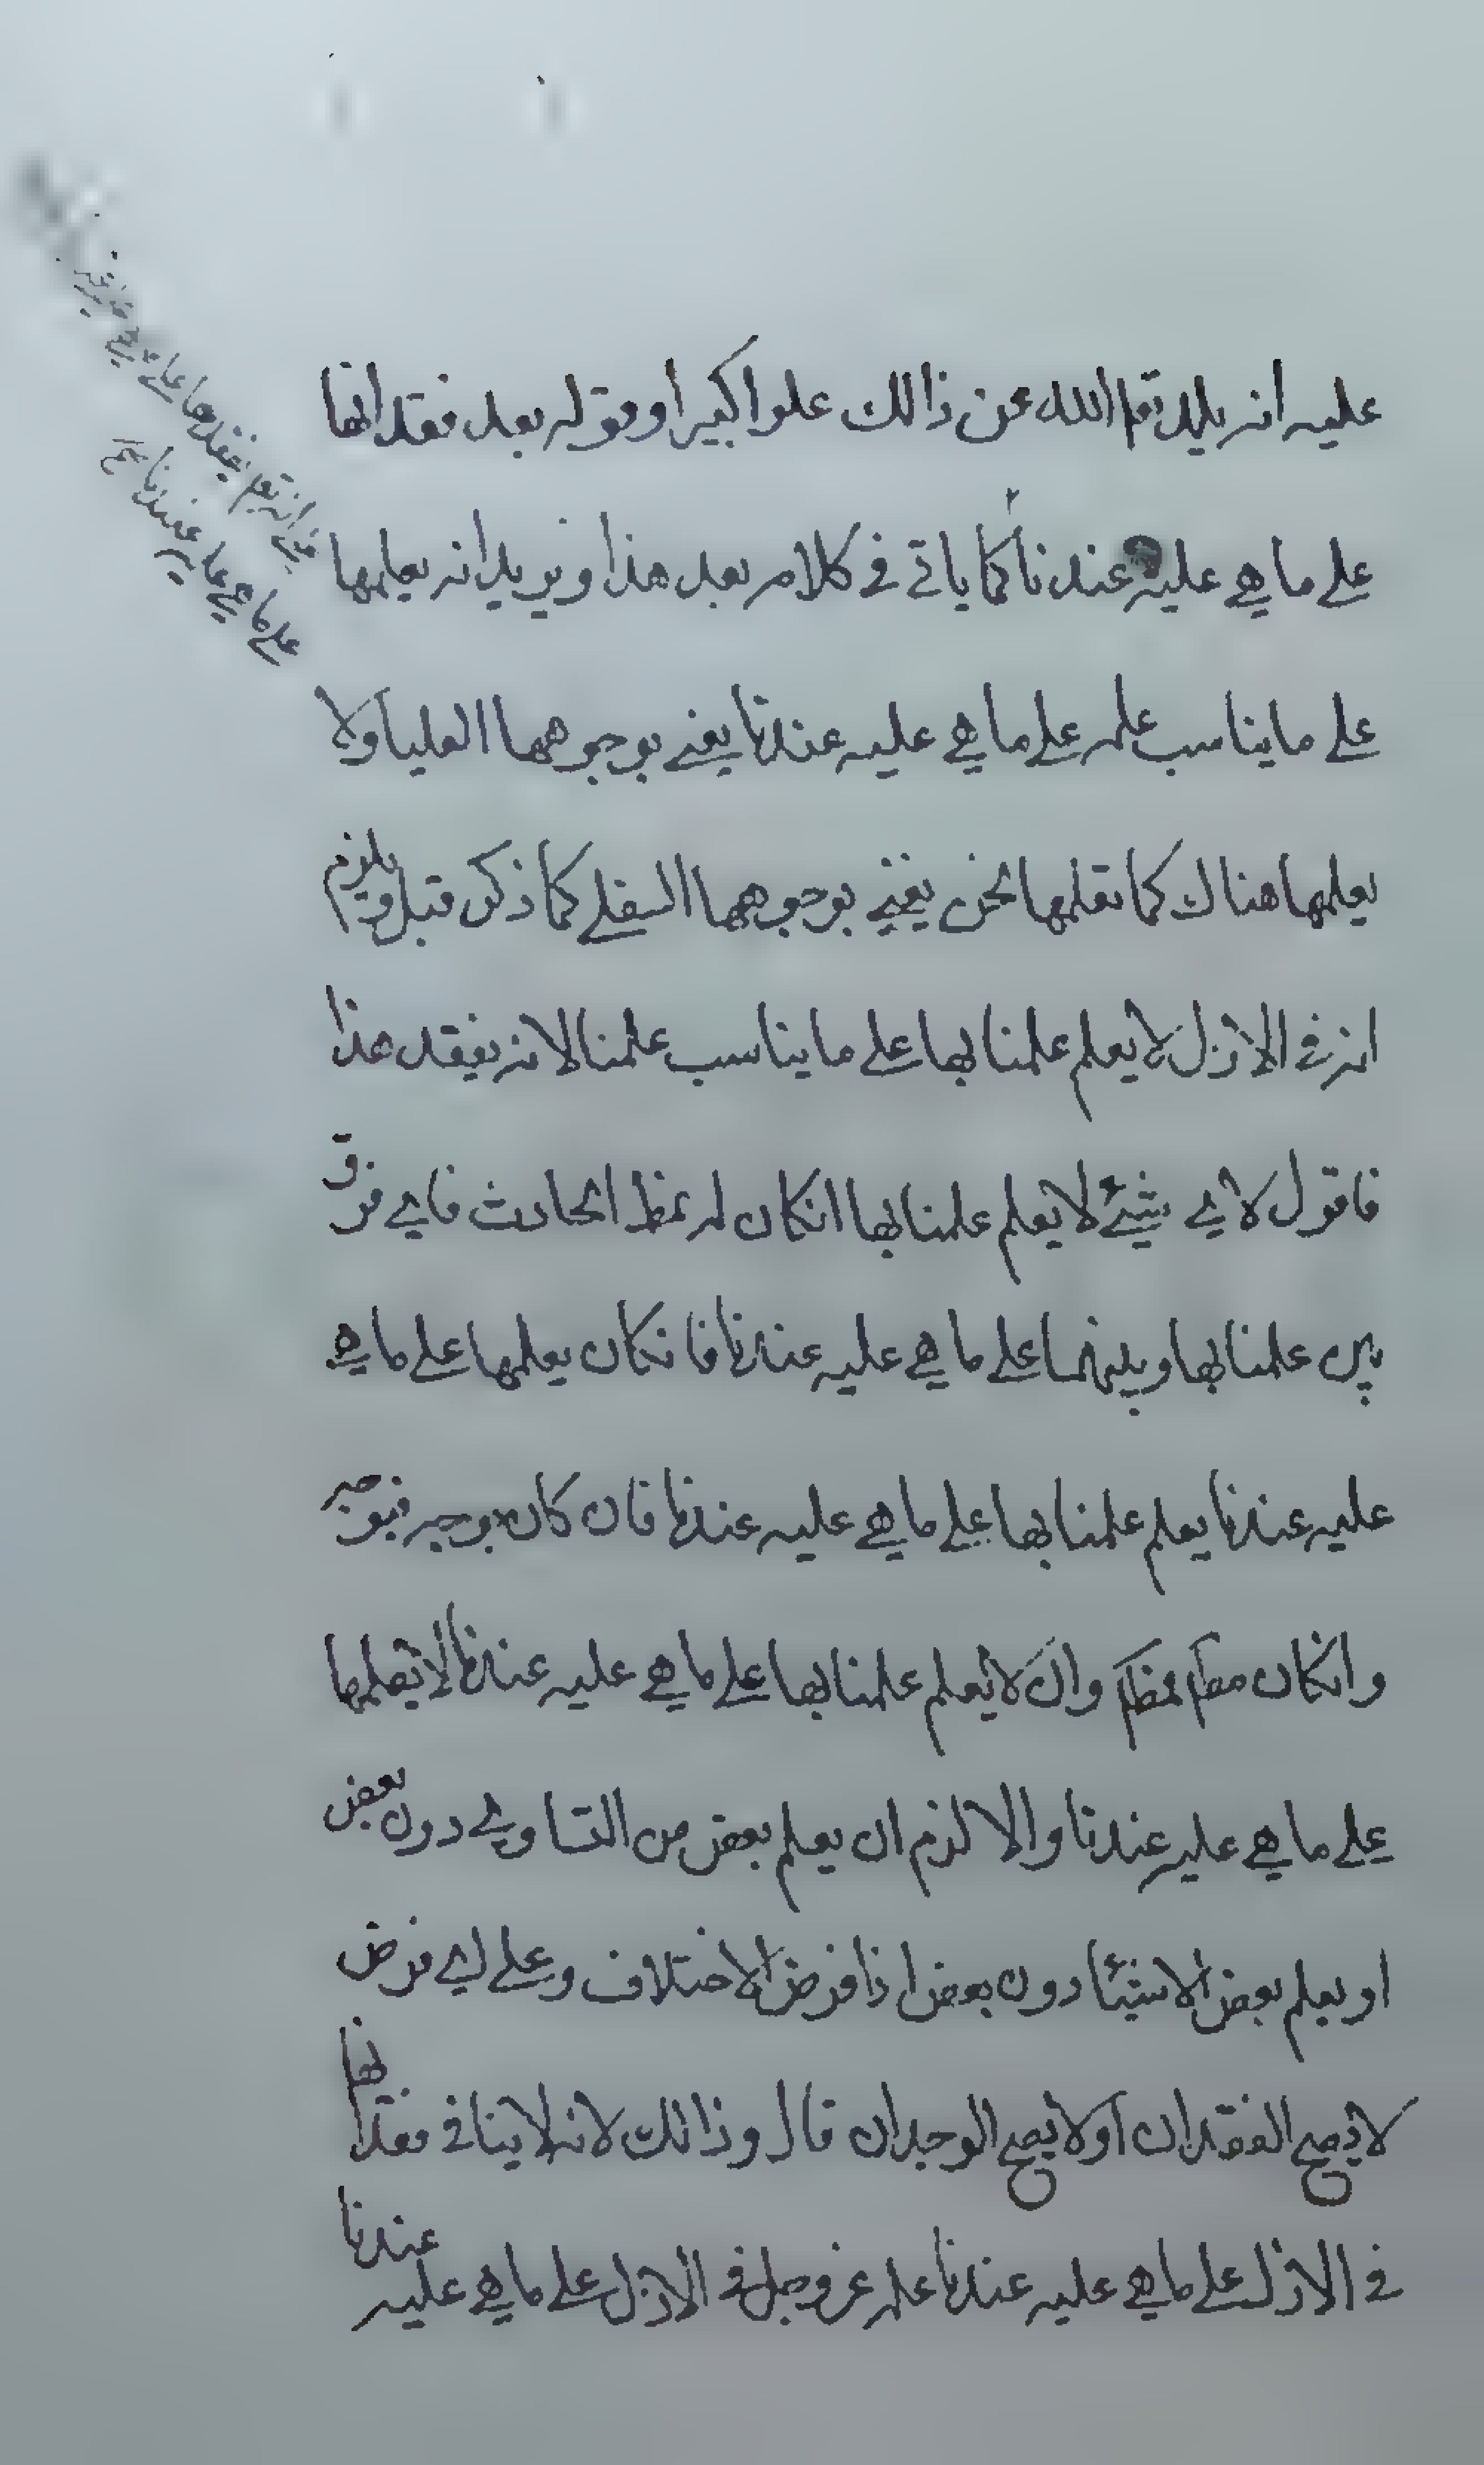 عليه انه يلد تع الله عن ذالك علوا كبيرا وقوله بعد فقدانها
على ما هي عليه عندنا كما ياتي في كلامه بعد هذا ويريد انه يعلمها
على ما يناسب علمه على ما هي عليه عندنا يعني بوجوهها العليا ولا
يعلمها هناك كما نعلمها نحن يعني بوجوهها السفلى كما ذكر قبل ويلزم
انه في الازل لا يعلم علمنا بها على ما يناسب علمنا لانه يفقد هذا
فاقول لاي شيئ لا يعلم علمنا بها انكان لم الحادث فاي فرق
بين علمنا بها وبينها على ما هي عليه عندنا فانكان يعلمها على ما هي
عليه عندنا يعلم علمنا بها على ما هي عليه عندنا فان كان بوجه فبوجه
وانكان مطم فمطم وان لا يعلم علمنا بها على ما هي عليه عندنا لا يعلمها
على ما هي عليه عندنا والا لزم ان يعلم بعض من التساوي دون بعض
او يعلم بعض الاشيئا دون بعض اذا فرض الاختلاف وعلى اي فرض
لا يصح الفقدان او لا يصح الوجدان قال وذالك لانه لا ينافي فقدانها
في الازل على ما هي عليه عندنا علمه عز وجل في الازل على ما هي عليه عندنا
انه تع يفقدها على
على ما هي عليه عندنا